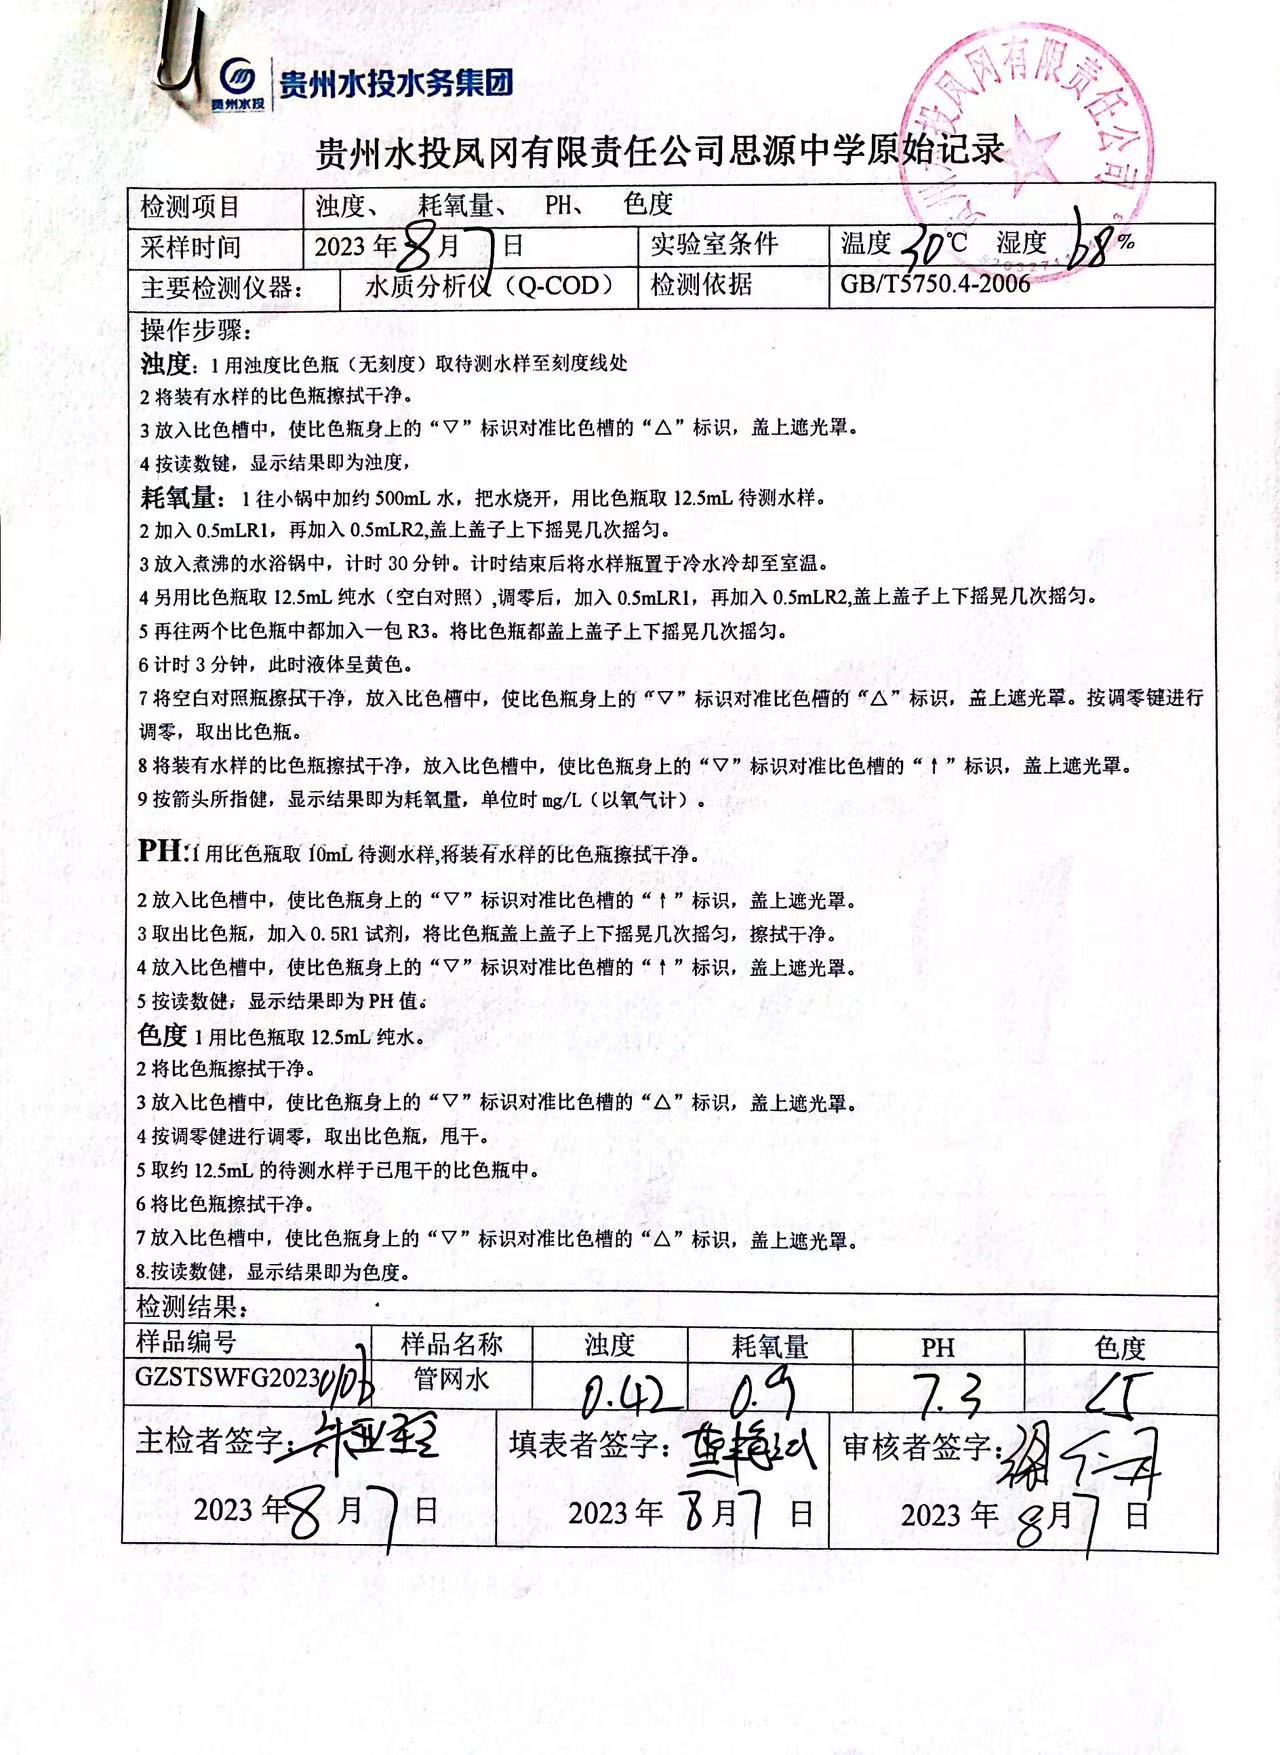 贵州水投
贵州水投水务集团
贵州水投凤冈有限责任公司思源中学原始记录
检测项目 浊度、 耗氧量、 PH、 色度
采样时间 2023年8月7日 实验室条件 温度30℃ 湿度68%
主要检测仪器： 水质分析仪（Q-COD） 检测依据 GB/T5750.4-2006
操作步骤：
浊度：1用浊度比色瓶（无刻度）取待测水样至刻度线处
2将装有水样的比色瓶擦拭干净。
3放入比色槽中，使比色瓶身上的“▽”标识对准比色槽的“△”标识，盖上遮光罩。
4按读数键，显示结果即为浊度，
耗氧量：1往小锅中加约500mL水，把水烧开，用比色瓶取12.5mL待测水样。
2加入0.5mLR1，再加入0.5mLR2,盖上盖子上下摇晃几次摇匀。
3放入煮沸的水浴锅中，计时30分钟。计时结束后将水样瓶置于冷水冷却至室温。
4另用比色瓶取12.5mL纯水（空白对照）,调零后，加入0.5mLR1，再加入0.5mLR2,盖上盖子上下摇晃几次摇匀。
5再往两个比色瓶中都加入一包R3。将比色瓶都盖上盖子上下摇晃几次摇匀。
6计时3分钟，此时液体呈黄色。
7将空白对照瓶擦拭干净，放入比色槽中，使比色瓶身上的“▽”标识对准比色槽的“△”标识，盖上遮光罩。按调零键进行
调零，取出比色瓶。
8将装有水样的比色瓶擦拭干净，放入比色槽中，使比色瓶身上的“▽”标识对准比色槽的“↑”标识，盖上遮光罩。
9按箭头所指健，显示结果即为耗氧量，单位时mg/L（以氧气计）。
PH:1用比色瓶取10mL待测水样,将装有水样的比色瓶擦拭干净。
2放入比色槽中，使比色瓶身上的“▽”标识对准比色槽的“↑”标识，盖上遮光罩。
3取出比色瓶，加入0.5R1试剂，将比色瓶盖上盖子上下摇晃几次摇匀，擦拭干净。
4放入比色槽中，使比色瓶身上的“▽”标识对准比色槽的“↑”标识，盖上遮光罩。
5按读数健，显示结果即为PH值。
色度1用比色瓶取12.5mL纯水。
2将比色瓶擦拭干净。
3放入比色槽中，使比色瓶身上的“▽”标识对准比色槽的“△”标识，盖上遮光罩。
4按调零健进行调零，取出比色瓶，甩干。
5取约12.5mL的待测水样于已甩干的比色瓶中。
6将比色瓶擦拭干净。
7放入比色槽中，使比色瓶身上的“▽”标识对准比色槽的“△”标识，盖上遮光罩。
8.按读数健，显示结果即为色度。
检测结果：
样品编号 样品名称 浊度 耗氧量 PH 色度
GZSTSWFG20230106 管网水 0.42 0.9 7.3 <5
主检者签字： 填表者签字： 审核者签字：
2023年8月7日 2023年8月7日 2023年8月7日